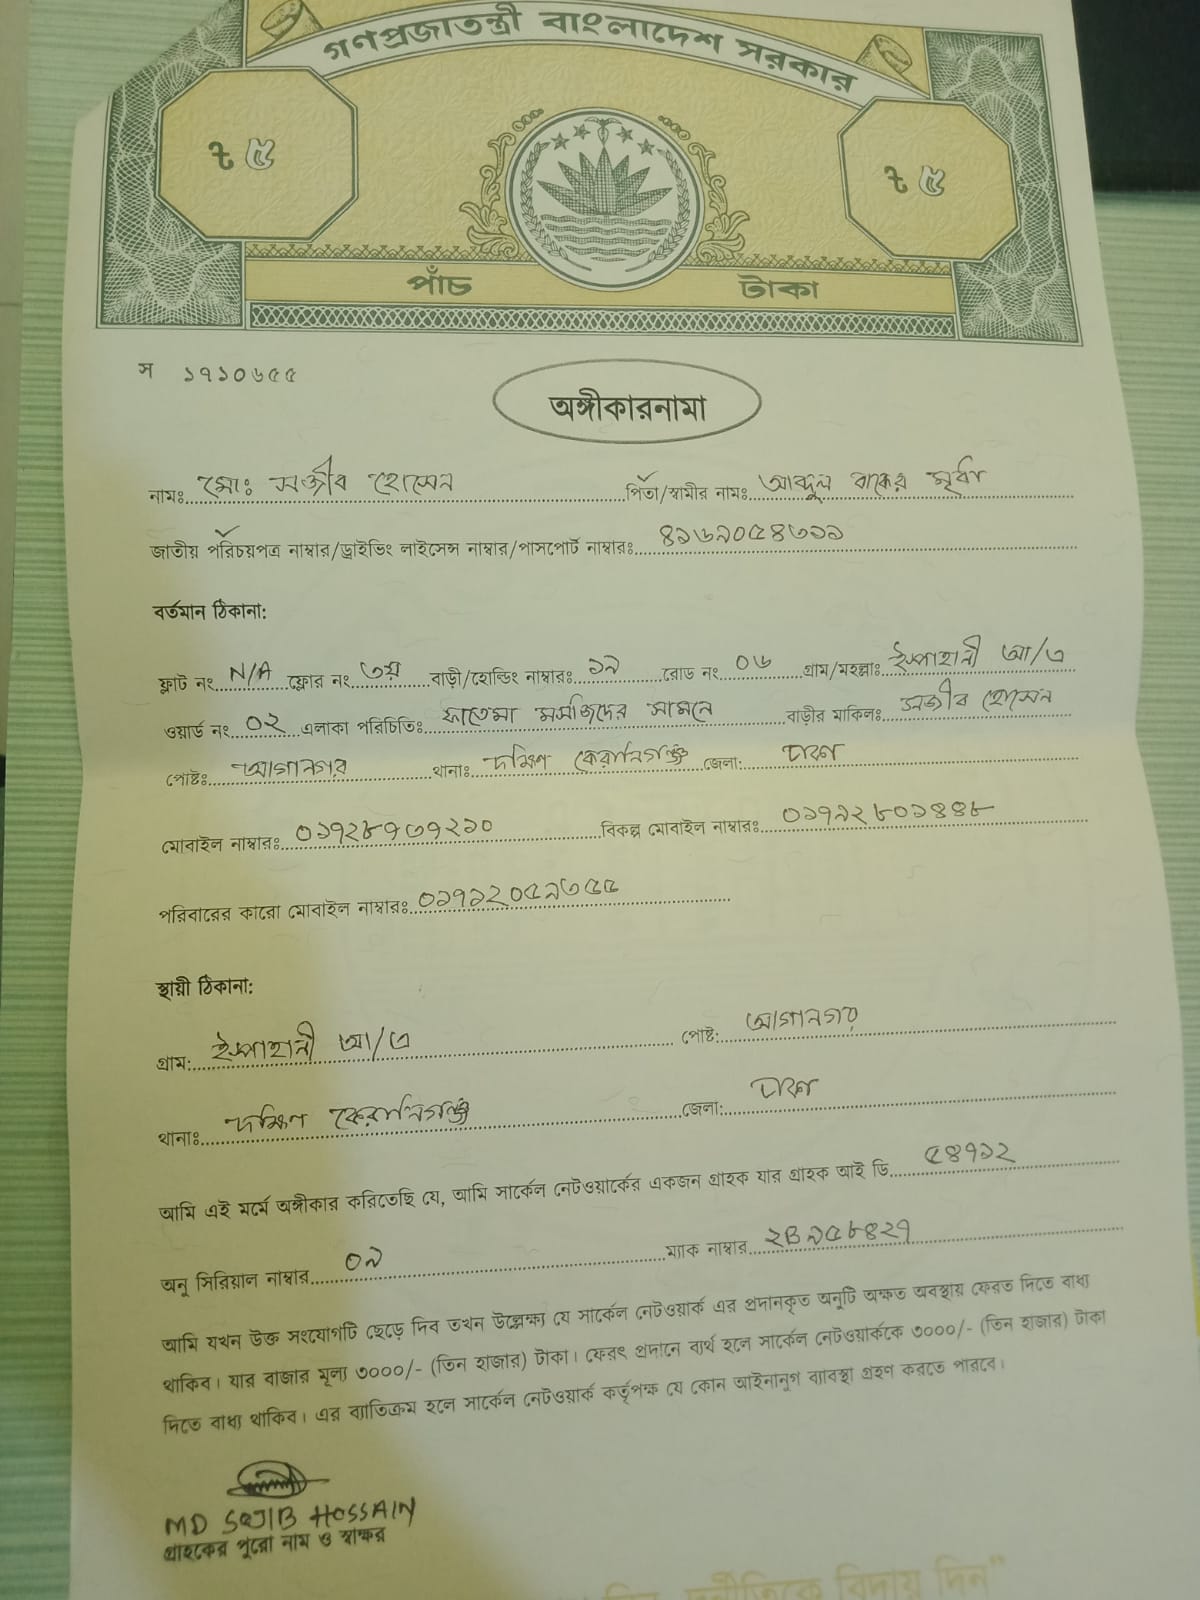 গণপ্রজাতন্ত্রী বাংলাদেশ সরকার
৳ ৫ ৳ ৫
পাঁচ টাকা
স ১৭১০৬৫৫
অঙ্গীকারনামা
নামঃ মোঃ সজীব হোসেন পিতা/স্বামীর নামঃ আব্দুল বাকের মৃর্ধা
জাতীয় পরিচয়পত্র নাম্বার/ড্রাইভিং লাইসেন্স নাম্বার/পাসপোর্ট নাম্বারঃ ৪১৬৯০৫৪৩১১
বর্তমান ঠিকানা:
ফ্লাট নং N/A ফ্লোর নং ৩য় বাড়ী/হোল্ডিং নাম্বারঃ ১৯ রোড নং ০৬ গ্রাম/মহল্লাঃ ইস্পাহানী আ/এ
ওয়ার্ড নং ০২ এলাকা পরিচিতিঃ ফাতেমা মসজিদের সামনে বাড়ীর মালিকঃ সজীব হোসেন
পোষ্টঃ আগানগর থানাঃ দক্ষিণ কেরানিগঞ্জ জেলা: ঢাকা
মোবাইল নাম্বারঃ ০১৭২৮৭৩৭২১০ বিকল্প মোবাইল নাম্বারঃ ০১৭৯২৮০১৪৪৮
পরিবারের কারো মোবাইল নাম্বারঃ ০১৭১২০৫৯৩৫৫
স্থায়ী ঠিকানা:
গ্রাম: ইস্পাহানী আ/এ পোষ্ট: আগানগর
থানাঃ দক্ষিণ কেরানিগঞ্জ জেলা: ঢাকা
আমি এই মর্মে অঙ্গীকার করিতেছি যে, আমি সার্কেল নেটওয়ার্কের একজন গ্রাহক যার গ্রাহক আই ডি ৫৪৭১২
অনু সিরিয়াল নাম্বার ০৯ ম্যাক নাম্বার ২B৯৫৮৪২৭
আমি যখন উক্ত সংযোগটি ছেড়ে দিব তখন উল্লেক্ষ্য যে সার্কেল নেটওয়ার্ক এর প্রদানকৃত অনুটি অক্ষত অবস্থায় ফেরত দিতে বাধ্য
থাকিব। যার বাজার মূল্য ৩০০০/- (তিন হাজার) টাকা। ফেরৎ প্রদানে ব্যর্থ হলে সার্কেল নেটওয়ার্ককে ৩০০০/- (তিন হাজার) টাকা
দিতে বাধ্য থাকিব। এর ব্যাতিক্রম হলে সার্কেল নেটওয়ার্ক কর্তৃপক্ষ যে কোন আইনানুগ ব্যাবস্থা গ্রহণ করতে পারবে।
MD SOJIB HOSSAIN
গ্রাহকের পুরো নাম ও স্বাক্ষর
দুর্নীতিকে বিদায় দিন"